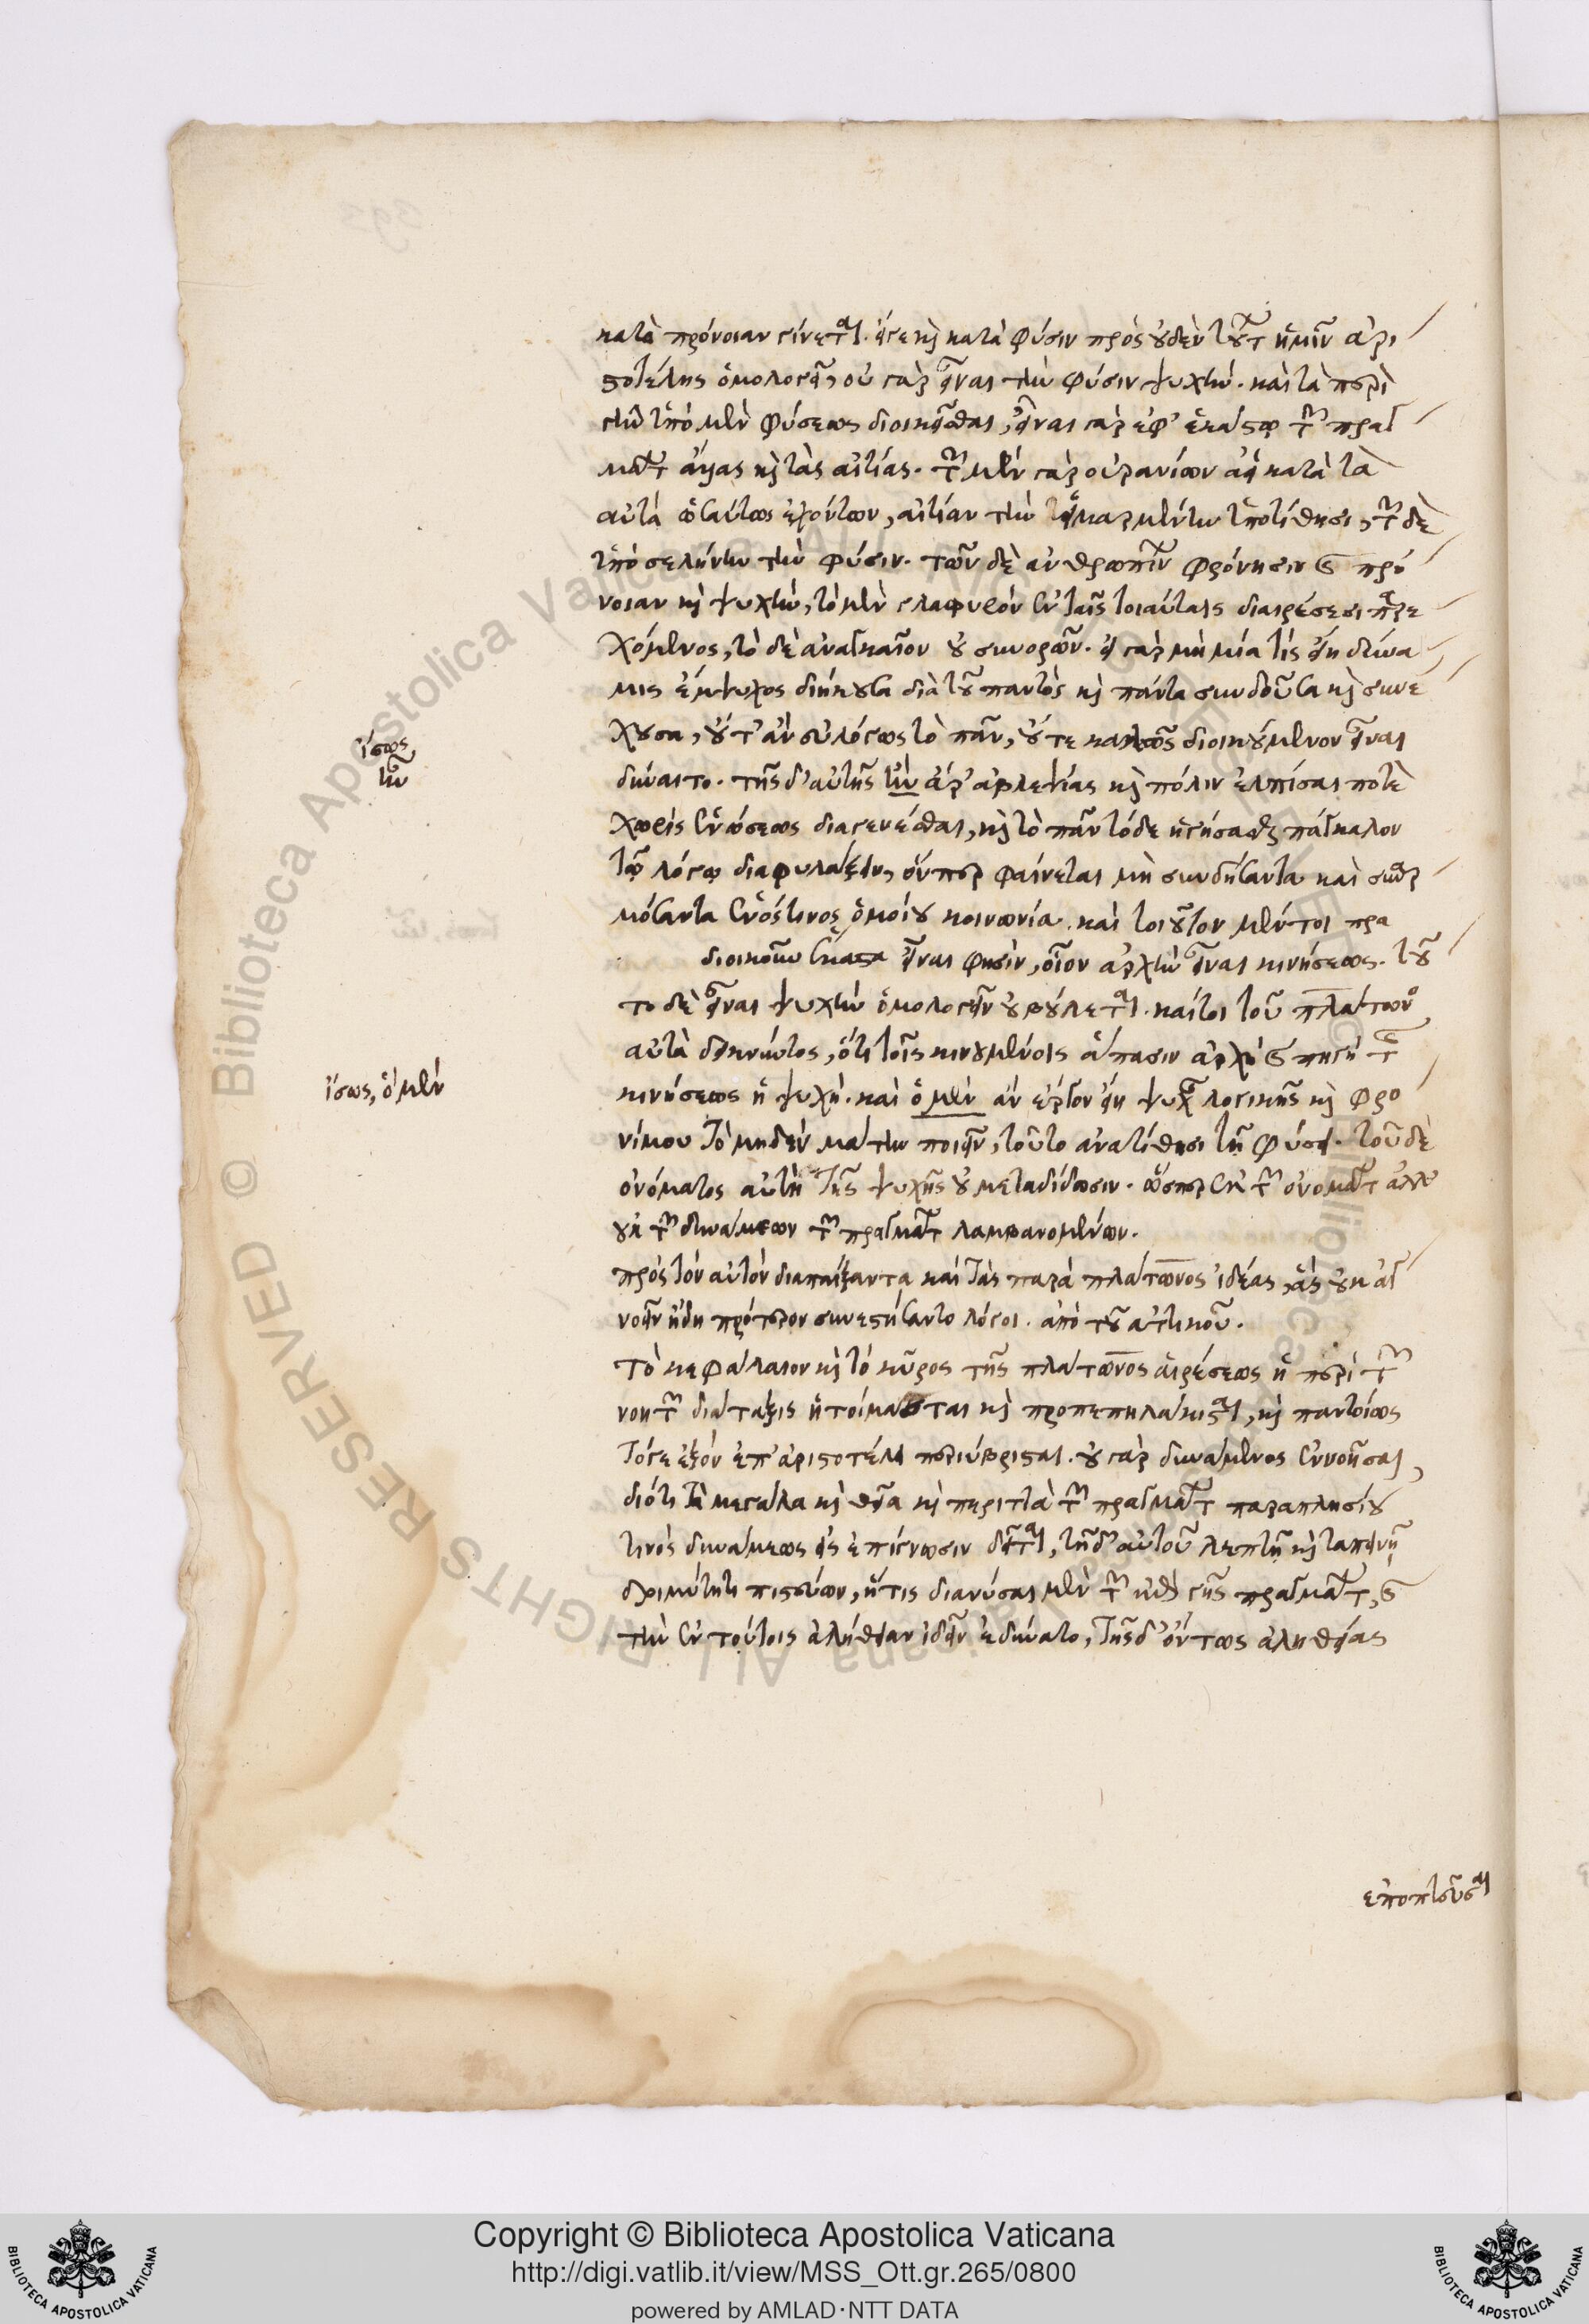 κατὰ πρόνοιαν γίνεται. εἴγε καὶ κατὰ φύσιν πρὸς οὐδὲν τούτων ἡμῖν ἀρι
στοτέλης ὁμολογεῖ, οὐ γὰρ εἶναι τὴν φύσιν ψυχήν. καὶ τὰ περὶ
γῆν ὑπὸ μὲν φύσεως διοικεῖσθαι, εἶναι γὰρ ἐφ' ἑκάστῳ τῶν πραγ
μάτων ἄλλας καὶ τὰς αἰτίας. τῶν μὲν γὰρ οὐρανίων ἀεὶ κατὰ τὰ
αὐτὰ ὡσαύτως ἐχόντων, αἰτίαν τὴν εἱμαρμένην ὑποτίθησι, τῶν δὲ
ὑπὸ σελήνην τὴν φύσιν. τῶν δὲ ἀνθρωπίνων φρόνησιν καὶ πρό
νοιαν καὶ ψυχήν, τὸ μὲν γλαφυρὸν ἐν ταῖς τοιαύταις διαιρέσεσι παρε
χόμενος, τὸ δὲ ἀναγκαῖον οὐ συνορῶν. εἰ γὰρ μὴ μία τις εἴη δύνα
μις ἔμψυχος διήκουσα διὰ τοῦ παντὸς καὶ πάντα συνδοῦσα καὶ συνέ
χουσα, οὔτ' ἂν εὐλόγως τὸ πᾶν, οὔτε καλῶς διοικούμενον εἶναι
δύναιτο. τῆς δ' αὐτῆς ἦν ἄρ' ἀβλεψίας καὶ πόλιν ἐλπίσαι ποτὲ
χωρὶς ἑνώσεως διαγενέσθαι, καὶ τὸ πᾶν τόδε ἡγήσασθαι πάγκαλον
τῷ λόγῳ διαφυλάξειν, ὅνπερ φαίνεται μὴ συνδήσαντα καὶ συναρ
μόσαντα ἑνός τινος ὁμοίου κοινωνίᾳ. καὶ τοιοῦτον μέντοι πρα
διοικοῦν ἕκαστα εἶναι φησίν, οἷον ἀρχὴν εἶναι κινήσεως. τοῦ
το δὲ εἶναι ψυχὴν ὁμολογεῖν οὐ βούλεται. καίτοι τοῦ πλάτωνος
αὐτὰ δεικνύντος, ὅτι τοῖς κινουμένοις ἅπασιν ἀρχὴ καὶ πηγὴ τῆς
κινήσεως ἡ ψυχή. καὶ ὁ μὲν ἂν ἔργον εἴη ψυχῆς λογικῆς καὶ φρο
νίμου τὸ μηδὲν μάτην ποιεῖν, τοῦτο ἀνατίθησι τῇ φύσει. τοῦ δὲ
ὀνόματος αὐτῇ τῆς ψυχῆς οὐ μεταδίδωσιν. ὥσπερ ἐκ τῶν ὀνομάτων ἀλλ'
οὐκ τῶν δυνάμεων τῶν πραγμάτων λαμβανομένων.
πρὸς τὸν αὐτὸν διαπαίξαντα καὶ τὰς παρὰ πλάτωνος ἰδέας, ἃς οὐκ ἀγ
νοεῖν ἤδη πρότερον συνεστήσαντο λόγοι. ἀπὸ τοῦ ἀττικοῦ.
τὸ κεφάλαιον καὶ τὸ κῦρος τῆς πλάτωνος αἱρέσεως ἡ περὶ τῶν
νοητῶν διάταξις ἡτοίμασται καὶ προπεπηλάκισται, καὶ παντοίως
τό γε ἐξὸν ἐπ' ἀριστοτέλει περιύβρισται. οὐ γὰρ δυνάμενος ἐννοῆσαι
διότι τὰ μεγάλα καὶ θεῖα καὶ περιττὰ τῶν πραγμάτων παραπλησίου
τινὸς δυνάμεως εἰς ἐπίγνωσιν δεῖται, τῇ δ' αὐτοῦ λεπτῇ καὶ ταπεινῇ
δριμύτητι πιστεύων, ἥτις διανύσαι μὲν τῶν κατὰ γῆς πραγμάτων, καὶ
τὴν ἐν τούτοις ἀλήθειαν ἰδεῖν ἐδύνατο, τῆς δ' ὄντως ἀληθείας
ἐποπτεῦσαι
ἴσως,
ἦν
ἴσως, ὃ μὲν
Biblioteca Apostolica Vaticana ALL RIGHTS RESERVED ©
Copyright © Biblioteca Apostolica Vaticana
http://digi.vatlib.it/view/MSS_Ott.gr.265/0800
powered by AMLAD·NTT DATA
BIBLIOTECA APOSTOLICA VATICANA
BIBLIOTECA APOSTOLICA VATICANA